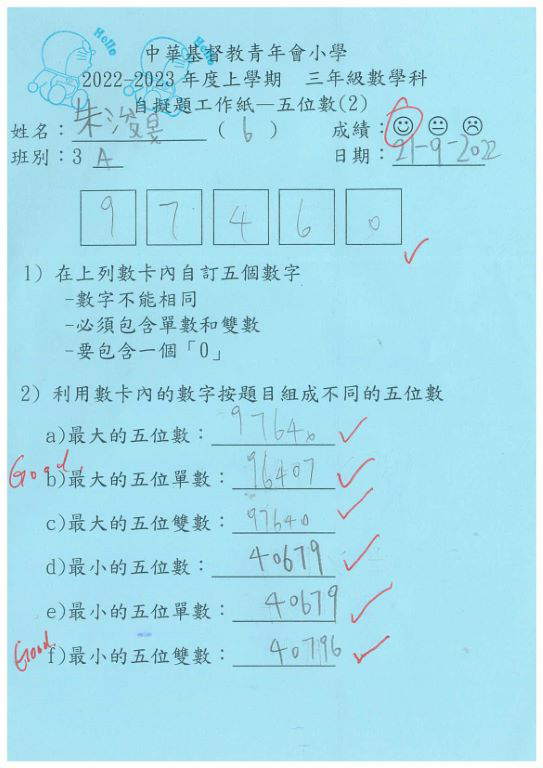 Hello
Hello
中華基督教青年會小學
2022-2023 年度上學期 三年級數學科
自擬題工作紙—五位數(2)
姓名：朱浚 ( 6 ) 成績：
班別：3 A 日期：21-9-2022
9 7 4 6 0
1) 在上列數卡內自訂五個數字
-數字不能相同
-必須包含單數和雙數
-要包含一個「0」
2) 利用數卡內的數字按題目組成不同的五位數
a)最大的五位數：97640
Good
b)最大的五位單數：96407
c)最大的五位雙數：97640
d)最小的五位數：40679
e)最小的五位單數：40679
Good
f)最小的五位雙數：40796